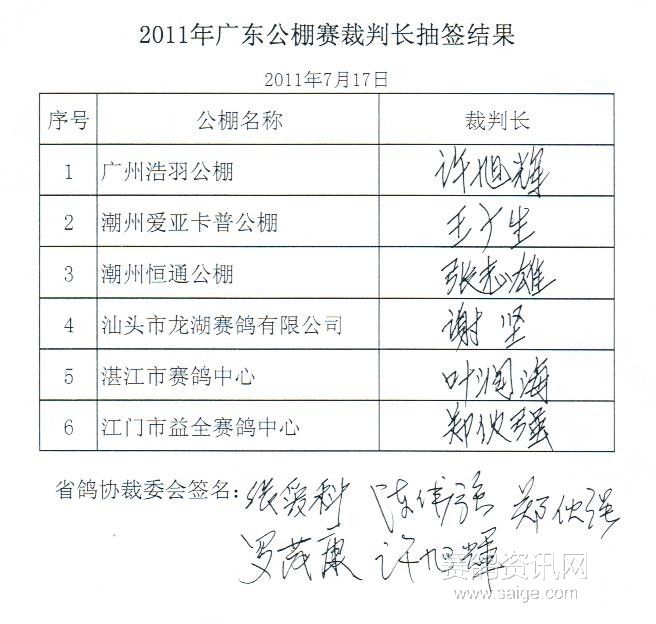 2011年广东公棚赛裁判长抽签结果
2011年7月17日
序号 公棚名称 裁判长
1 广州浩羽公棚 许旭辉
2 潮州爱亚卡普公棚 王少生
3 潮州恒通公棚 张志雄
4 汕头市龙湖赛鸽有限公司 谢坚
5 湛江市赛鸽中心 叶润海
6 江门市益全赛鸽中心 郑伙强
省鸽协裁委会签名：张爱科 陈伟强 郑伙强
罗茂康 许旭辉
赛鸽资讯网
www.saige.com